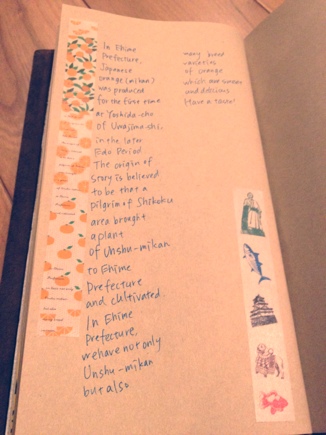 In Ehime
Prefecture,
Japanese
orange (mikan)
was produced
for the first time
at Yoshida-cho
of Uwajima-shi,
in the later
Edo Period
The origin of
story is believed
to be that a
pilgrim of Shikoku
area brought
a plant
of Unshu-mikan
to Ehime
Prefecture
and cultivated.
In Ehime
prefecture,
we have not only
Unshu-mikan
but also
many kinds
varieties
of orange
which are
and delicious
Have a taste!